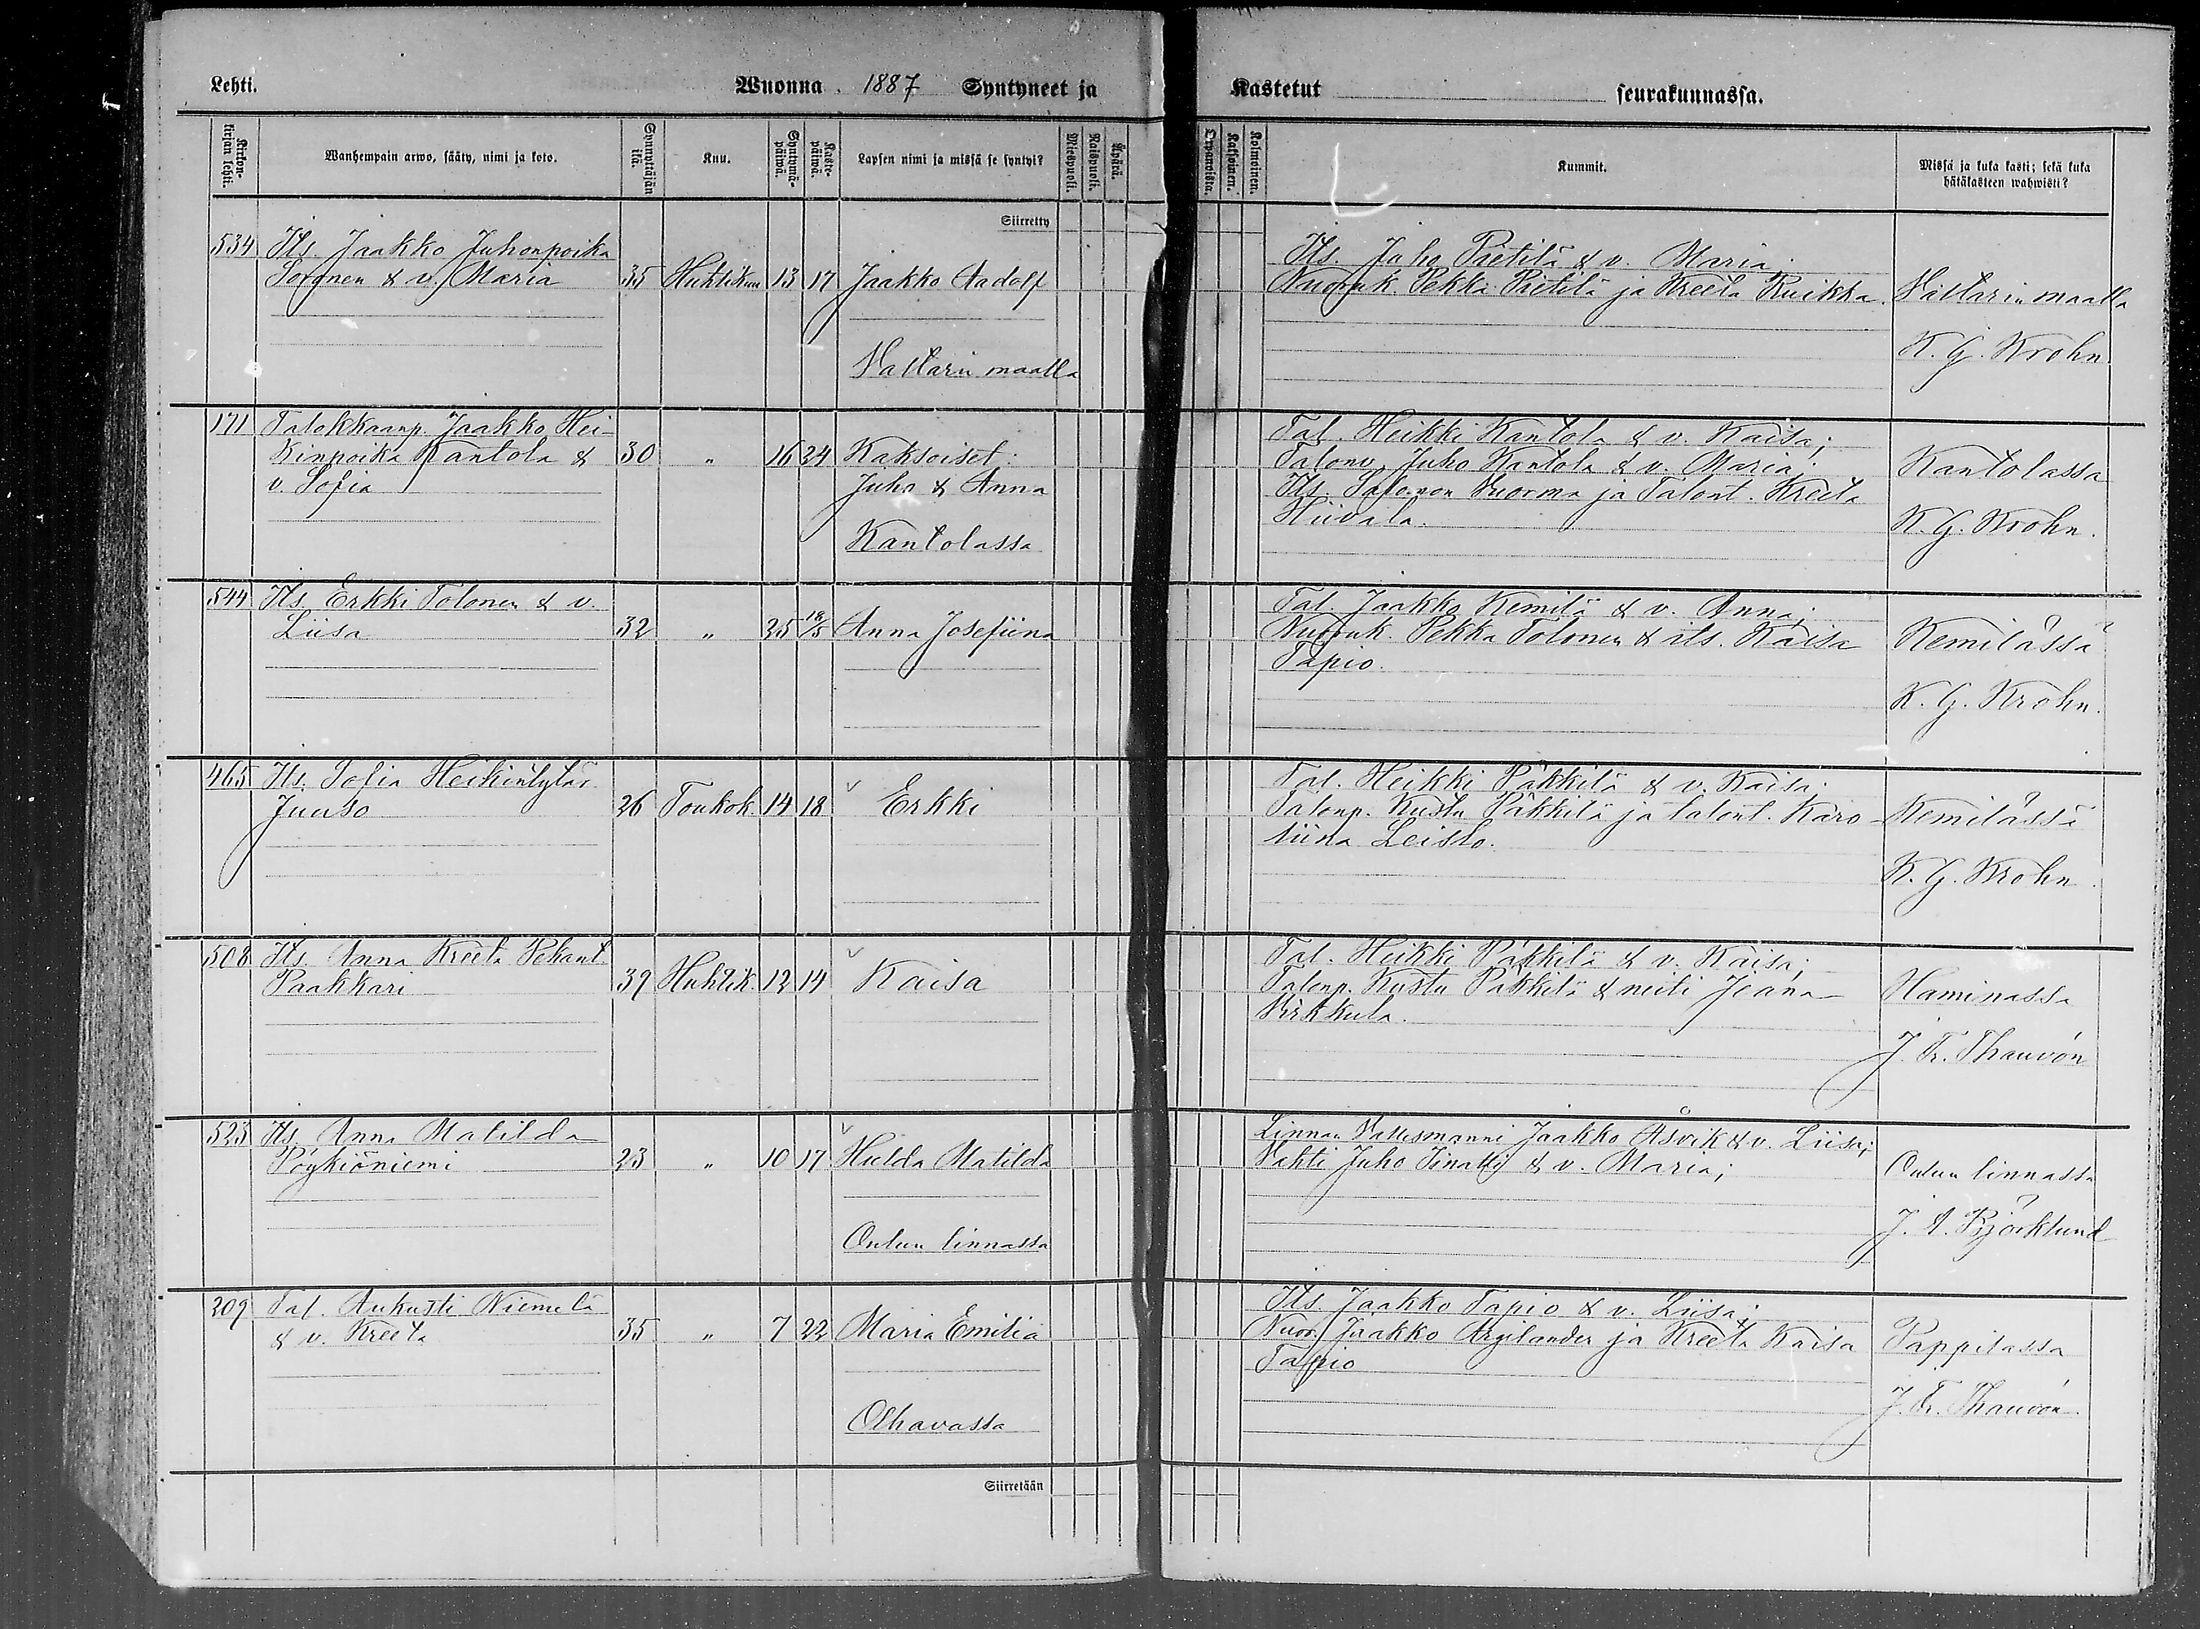 Lehti. Wuonna 1887 Syntyneet ja Kastetut seurakunnassa.
Kirkonkirjan lehti. Wanhempain arwo, sääty, nimi ja koto. Synnyttäjän ikä Kuu. Syntymäpäiwä. Kastepäiwä. Lapsen nimi ja missä se syntyi? Miespuoli. Waispuoli. Äpärä. Orpanoista. Kaksoinen. Kolmoinen. Kummit. Missä ja kuka kasti; sekä kuka hätäkasteen wahwisti?
Siirretty
534 Its. Jaakko Juhonpoika
Soronen & v. Maria 35 Huhtikuu 13 17 Jaakko Aadolf
Vattarin maalla
Its. Juho Pietilä & v. Maria;
Nuoruk. Pekka Pietilä ja Kreeta Ruikka.
Vattarin maalla
K. G. Krohn.
171 Talokkaanp. Jaakko Hei-
kinpoika Kantola & 30 " 16 24 Kaksoiset:
v. Sofia Juho & Anna
Kantolassa
Tal. Heikki Kantola & v. Kaisa;
Talonv. Juho Kantola & v. Maria;
Its. Salomon Vuorma ja Talont. Kreeta
Hiivala.
Kantolassa
K. G. Krohn.
544 Its. Erkki Tolonen & v.
Liisa 32 " 25 18/5 Anna Josefiina
Tal. Jaakko Kemilä & v. Anna;
Nuoruk. Pekka Tolonen & its. Kaisa
Tapio.
Kemilässä
K. G. Krohn.
465 Its. Sofia Heikintytär
Juuso 26 Toukok. 14 18 Erkki
Tal. Heikki Päkkilä & v. Kaisa;
Talonp. Kustu Päkkilä ja talont. Karo-
liina Leisto.
Kemilässä
K. G. Krohn.
508 Its. Anna Kreeta Pekant.
Paakkari 39 Huhtik. 12 14 Kaisa
Tal. Heikki Päkkilä & v. Kaisa;
Talonp. Kustu Päkkilä & neiti Jeana
Virkkula.
Haminassa
J. Fr. Thauvón
523 Its. Anna Matilda
Pöykiöniemi 23 " 10 17 Hulda Matilda
Oulun linnassa
Linnan Vahtimanni Jaakko Åsvik & v. Liisa;
Vahti Juho & v. Maria;
Oulun linnassa
J. A. Björklund
209 Tal. Aukusti Niemelä
& v. Kreeta 35 " 7 22 Maria Emilia
Olhavassa
Its. Jaakko Tapio & v. Liisa;
Nuor. Jaakko Argilander ja Kreeta Kaisa
Tapio
Pappilassa
J. Fr. Thauvón.
Siirretään